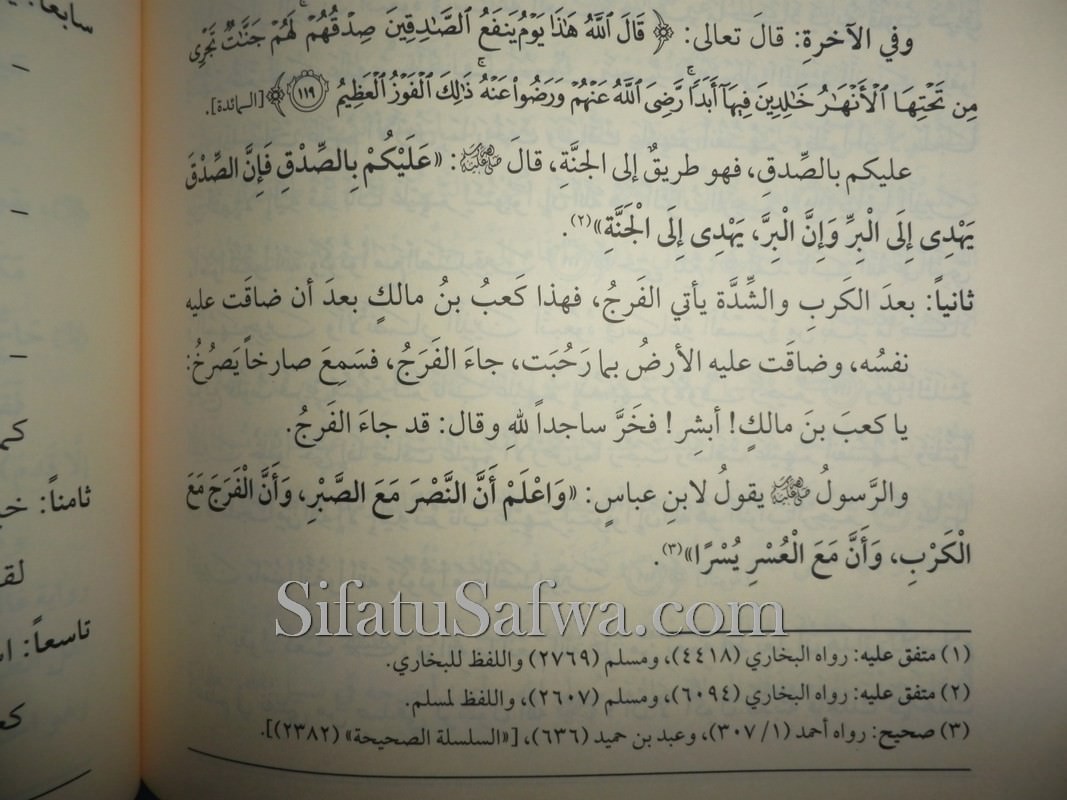 وفي الآخرةِ: قالَ تعالى: ﴿قَالَ ٱللَّهُ هَٰذَا يَوۡمُ يَنفَعُ ٱلصَّٰدِقِينَ صِدۡقُهُمۡۚ لَهُمۡ جَنَّٰتٞ تَجۡرِي
مِن تَحۡتِهَا ٱلۡأَنۡهَٰرُ خَٰلِدِينَ فِيهَآ أَبَدٗاۖ رَّضِيَ ٱللَّهُ عَنۡهُمۡ وَرَضُواْ عَنۡهُۚ ذَٰلِكَ ٱلۡفَوۡزُ ٱلۡعَظِيمُ ١١٩﴾ [المائدة].
عليكم بالصِّدقِ، فهو طريقٌ إلى الجنَّةِ، قالَ ﷺ: «عَلَيْكُمْ بِالصِّدْقِ فَإِنَّ الصِّدْقَ
يَهْدِى إِلَى الْبِرِّ وَإِنَّ الْبِرَّ، يَهْدِى إِلَى الْجَنَّةِ»(٢).
ثانياً: بعدَ الكَربِ والشِّدَّة يأتي الفَرجُ، فهذا كَعبُ بنُ مالكٍ بعدَ أن ضاقَت عليه
نفسُه، وضاقَت عليه الأرضُ بما رَحُبَت، جاءَ الفَرَجُ، فسَمِعَ صارخاً يَصرُخُ:
يا كعبَ بنَ مالكٍ! أبشِر! فخَرَّ ساجداً للهِ وقال: قد جاءَ الفَرجُ.
والرَّسولُ ﷺ يقولُ لابنِ عباسٍ: «وَاعْلَمْ أَنَّ النَّصْرَ مَعَ الصَّبْرِ، وَأَنَّ الْفَرَجَ مَعَ
الْكَرْبِ، وَأَنَّ مَعَ الْعُسْرِ يُسْرًا»(٣).
SifatuSafwa.com
(١) متفق عليه: رواه البخاري (٤٤١٨)، ومسلم (٢٧٦٩) واللفظ للبخاري.
(٢) متفق عليه: رواه البخاري (٦٠٩٤)، ومسلم (٢٦٠٧)، واللفظ لمسلم.
(٣) صحيح: رواه أحمد (١/ ٣٠٧)، وعبد بن حميد (٦٣٦)، [«السلسلة الصحيحة» (٢٣٨٢)].
سابعاً:
ثامناً:
تاسعاً: